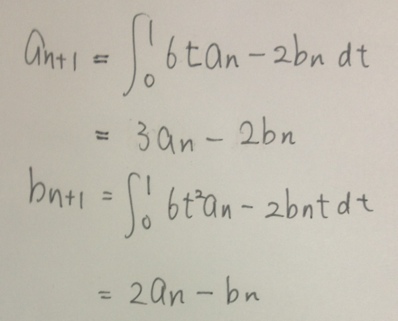 aₙ₊₁ = ∫₀¹ 6taₙ − 2bₙ dt
= 3aₙ − 2bₙ
bₙ₊₁ = ∫₀¹ 6t²aₙ − 2bₙt dt
= 2aₙ − bₙ